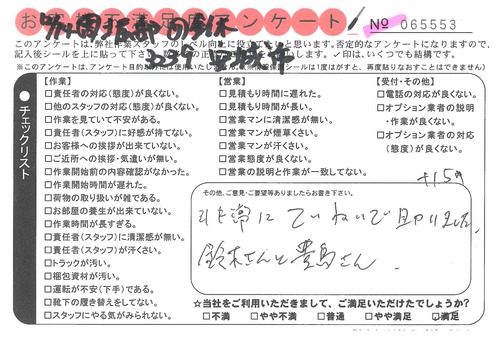 お客様満足度アンケート
No 065553
このアンケートは、弊社作業スタッフのレベル向上に役立てたいと思います。否定的なアンケートになりますので、
✓印は、いくつでも結構です。
チェックリスト
【作業】
□責任者の対応(態度)が良くない。
□他のスタッフの対応(態度)が良くない。
□作業を見ていて不安がある。
□責任者(スタッフ)に好感が持てない。
□お客様への挨拶が出来ていない。
□ご近所への挨拶・気遣いが無い。
□作業開始前の内容確認がなかった。
□作業開始時間が遅れた。
□荷物の取り扱いが雑である。
□お部屋の養生が出来ていない。
□作業時間が長すぎる。
□責任者(スタッフ)に清潔感が無い。
□責任者(スタッフ)が汗くさい。
□トラックが汚い。
□梱包資材が汚い。
□運転が不安(下手)である。
□靴下の履き替えをしてない。
□スタッフにやる気がみられない。
【営業】
□見積もり時間に遅れた。
□見積もり時間が長い。
□営業マンに清潔感が無い。
□営業マンが煙草くさい。
□営業マンが汗くさい。
□営業態度が良くない。
□営業の説明と作業が一致してない。
【受付・その他】
□電話の対応が良くない。
□オプション業者の説明
・作業が良くない。
□オプション業者の対応
(態度)が良くない。
その他、ご意見・ご要望等ありましたらお書き下さい。
非常にていねいで助かりました。
鈴木さんと豊島さん。
☆当社をご利用いただきまして、ご満足いただけたでしょうか?
□不満 □やや不満 □普通 □やや満足 ☑満足